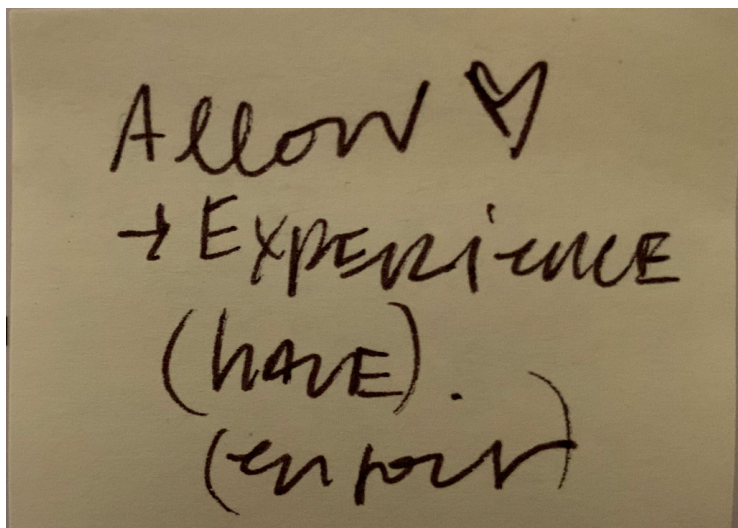 Allow ♡
→ Experience
(have).
(enjoy)